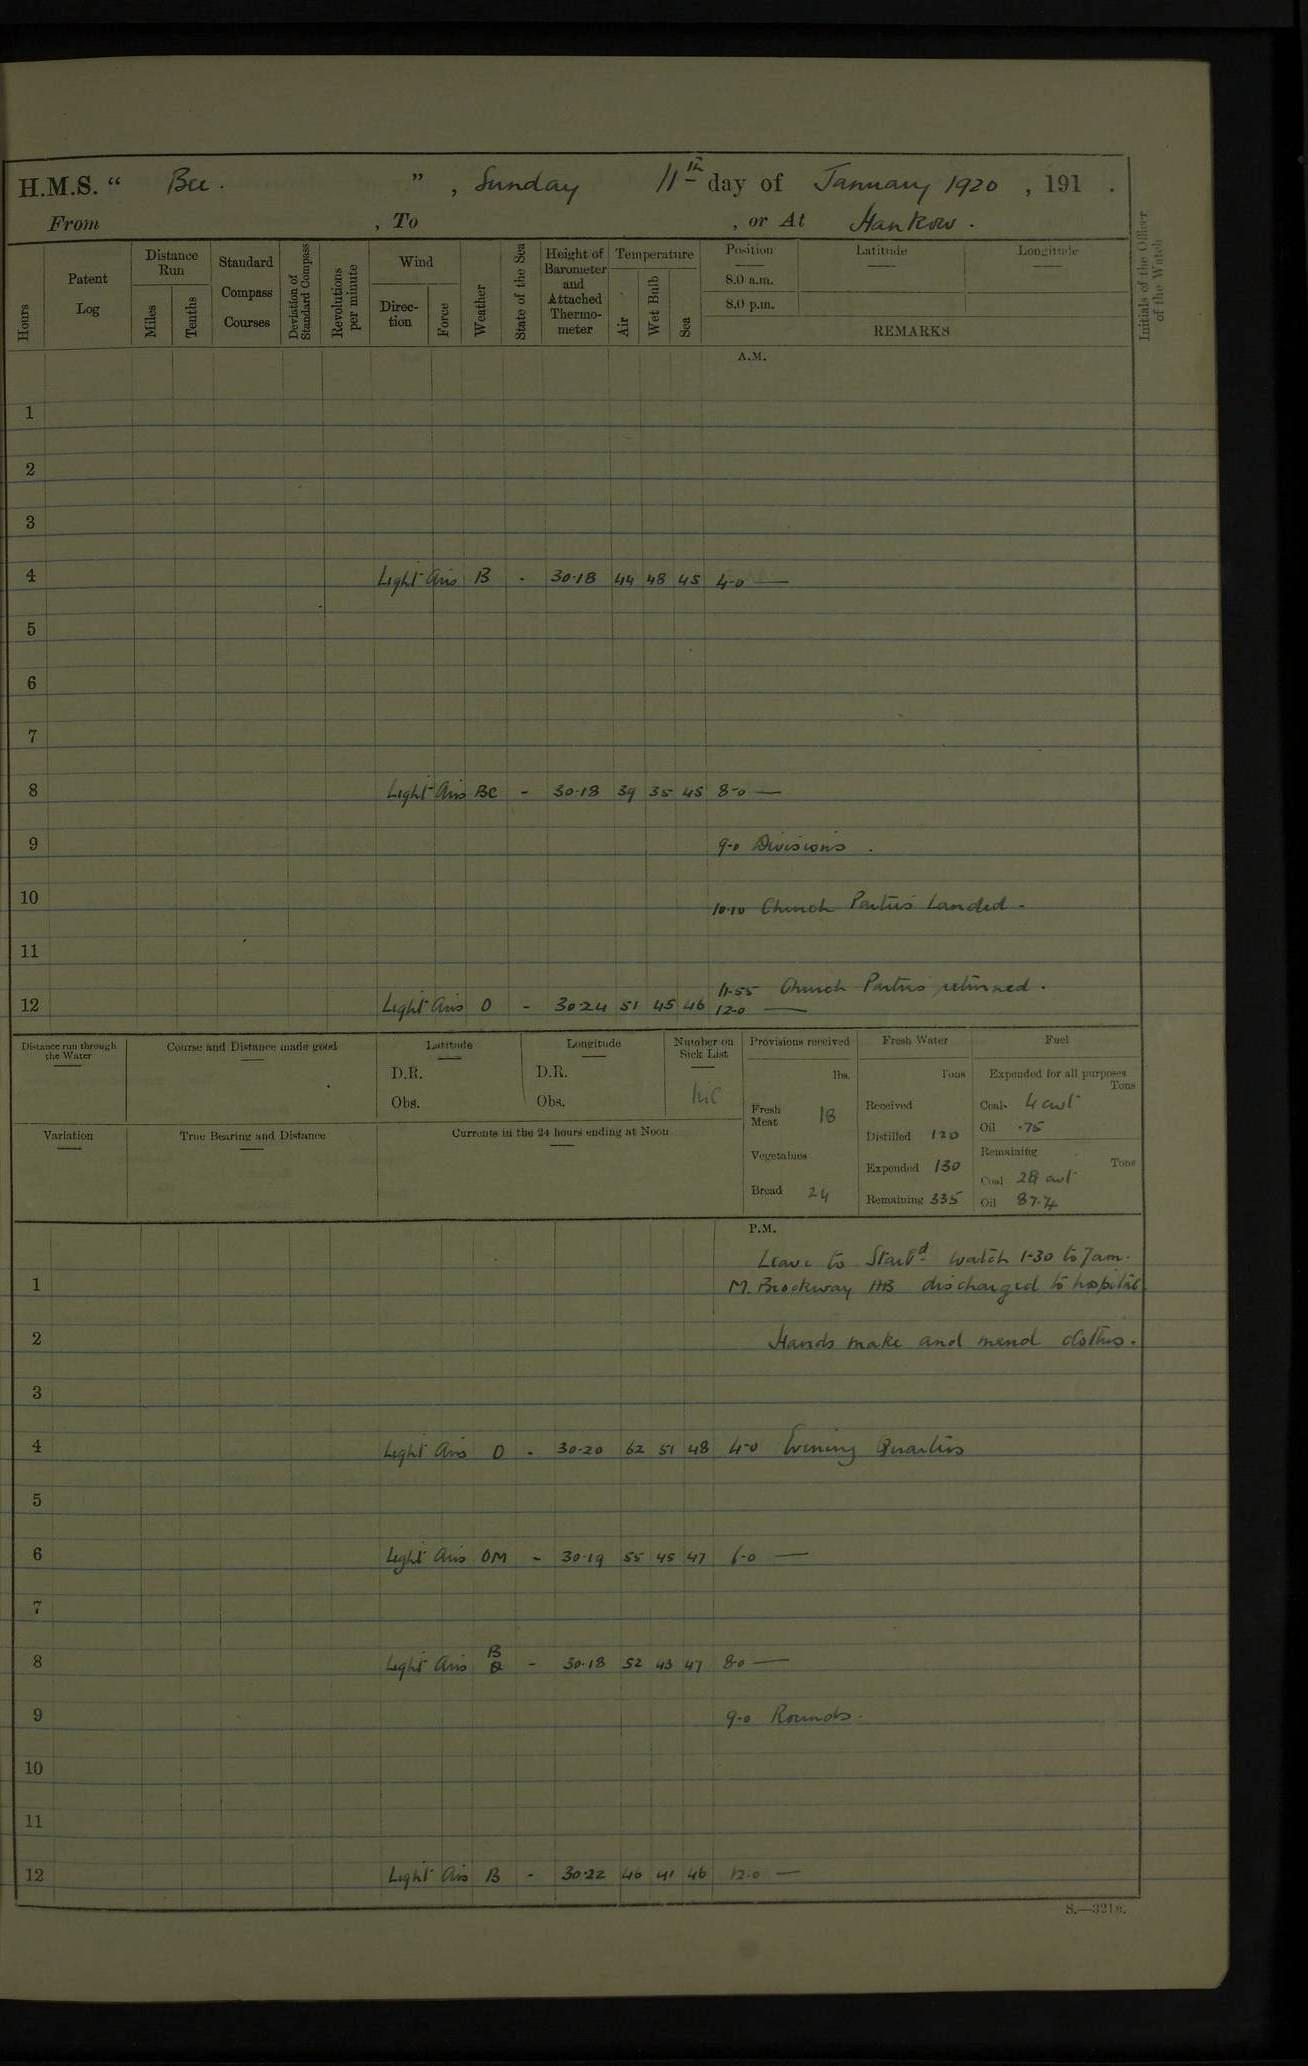 H.M.S. “ Bee. ” , Sunday 11th day of January 1920 , 191 .
From , To , or At Hankow .
Hours
Patent Log
Distance Run
Miles
Tenths
Standard Compass Courses
Deviation of Standard Compass
Revolutions per minute
Wind
Direc-tion
Force
Weather
State of the Sea
Height of Barometer and Attached Thermo-meter
Temperature
Air
Wet Bulb
Sea
Position
8.0 a.m.
8.0 p.m.
Latitude
Longitude
REMARKS
Initials of the Officer of the Watch
A.M.
1
2
3
4 Light Airs B - 30·18 44 48 45 4-0 —
5
6
7
8 Light Airs BC - 30·18 39 35 45 8-0 —
9 9-0 Divisions .
10 10·10 Church Parties Landed -
11
11-55 Church Parties returned .
12 Light Airs O - 30·24 51 45 46 12-0 —
Distance run through the Water
Course and Distance made good
Latitude
D.R.
Obs.
Longitude
D.R.
Obs.
Number on Sick List
Nil
Variation
True Bearing and Distance
Currents in the 24 hours ending at Noon
Provisions received
lbs.
Fresh Meat 18
Vegetables
Bread 24
Fresh Water
Tons
Received
Distilled 120
Expended 130
Remaining 335
Fuel
Expended for all purposes
Tons
Coal 4 cwt
Oil ·75
Remaining
Tons
Coal 28 cwt
Oil 87.4
P.M.
Leave to Starbd watch 1-30 to 7am.
1 M. Brockway AB discharged to hospital
2 Hands make and mend clothes.
3
4 Light Airs O - 30·20 62 51 48 4-0 Evening Quarters
5
6 Light Airs OM - 30·19 55 45 47 6-0 —
7
8 Light Airs B - 30·18 52 43 47 8-0 —
9 9-0 Rounds.
10
11
12 Light Airs B - 30·22 46 41 46 12-0 —
S.—321